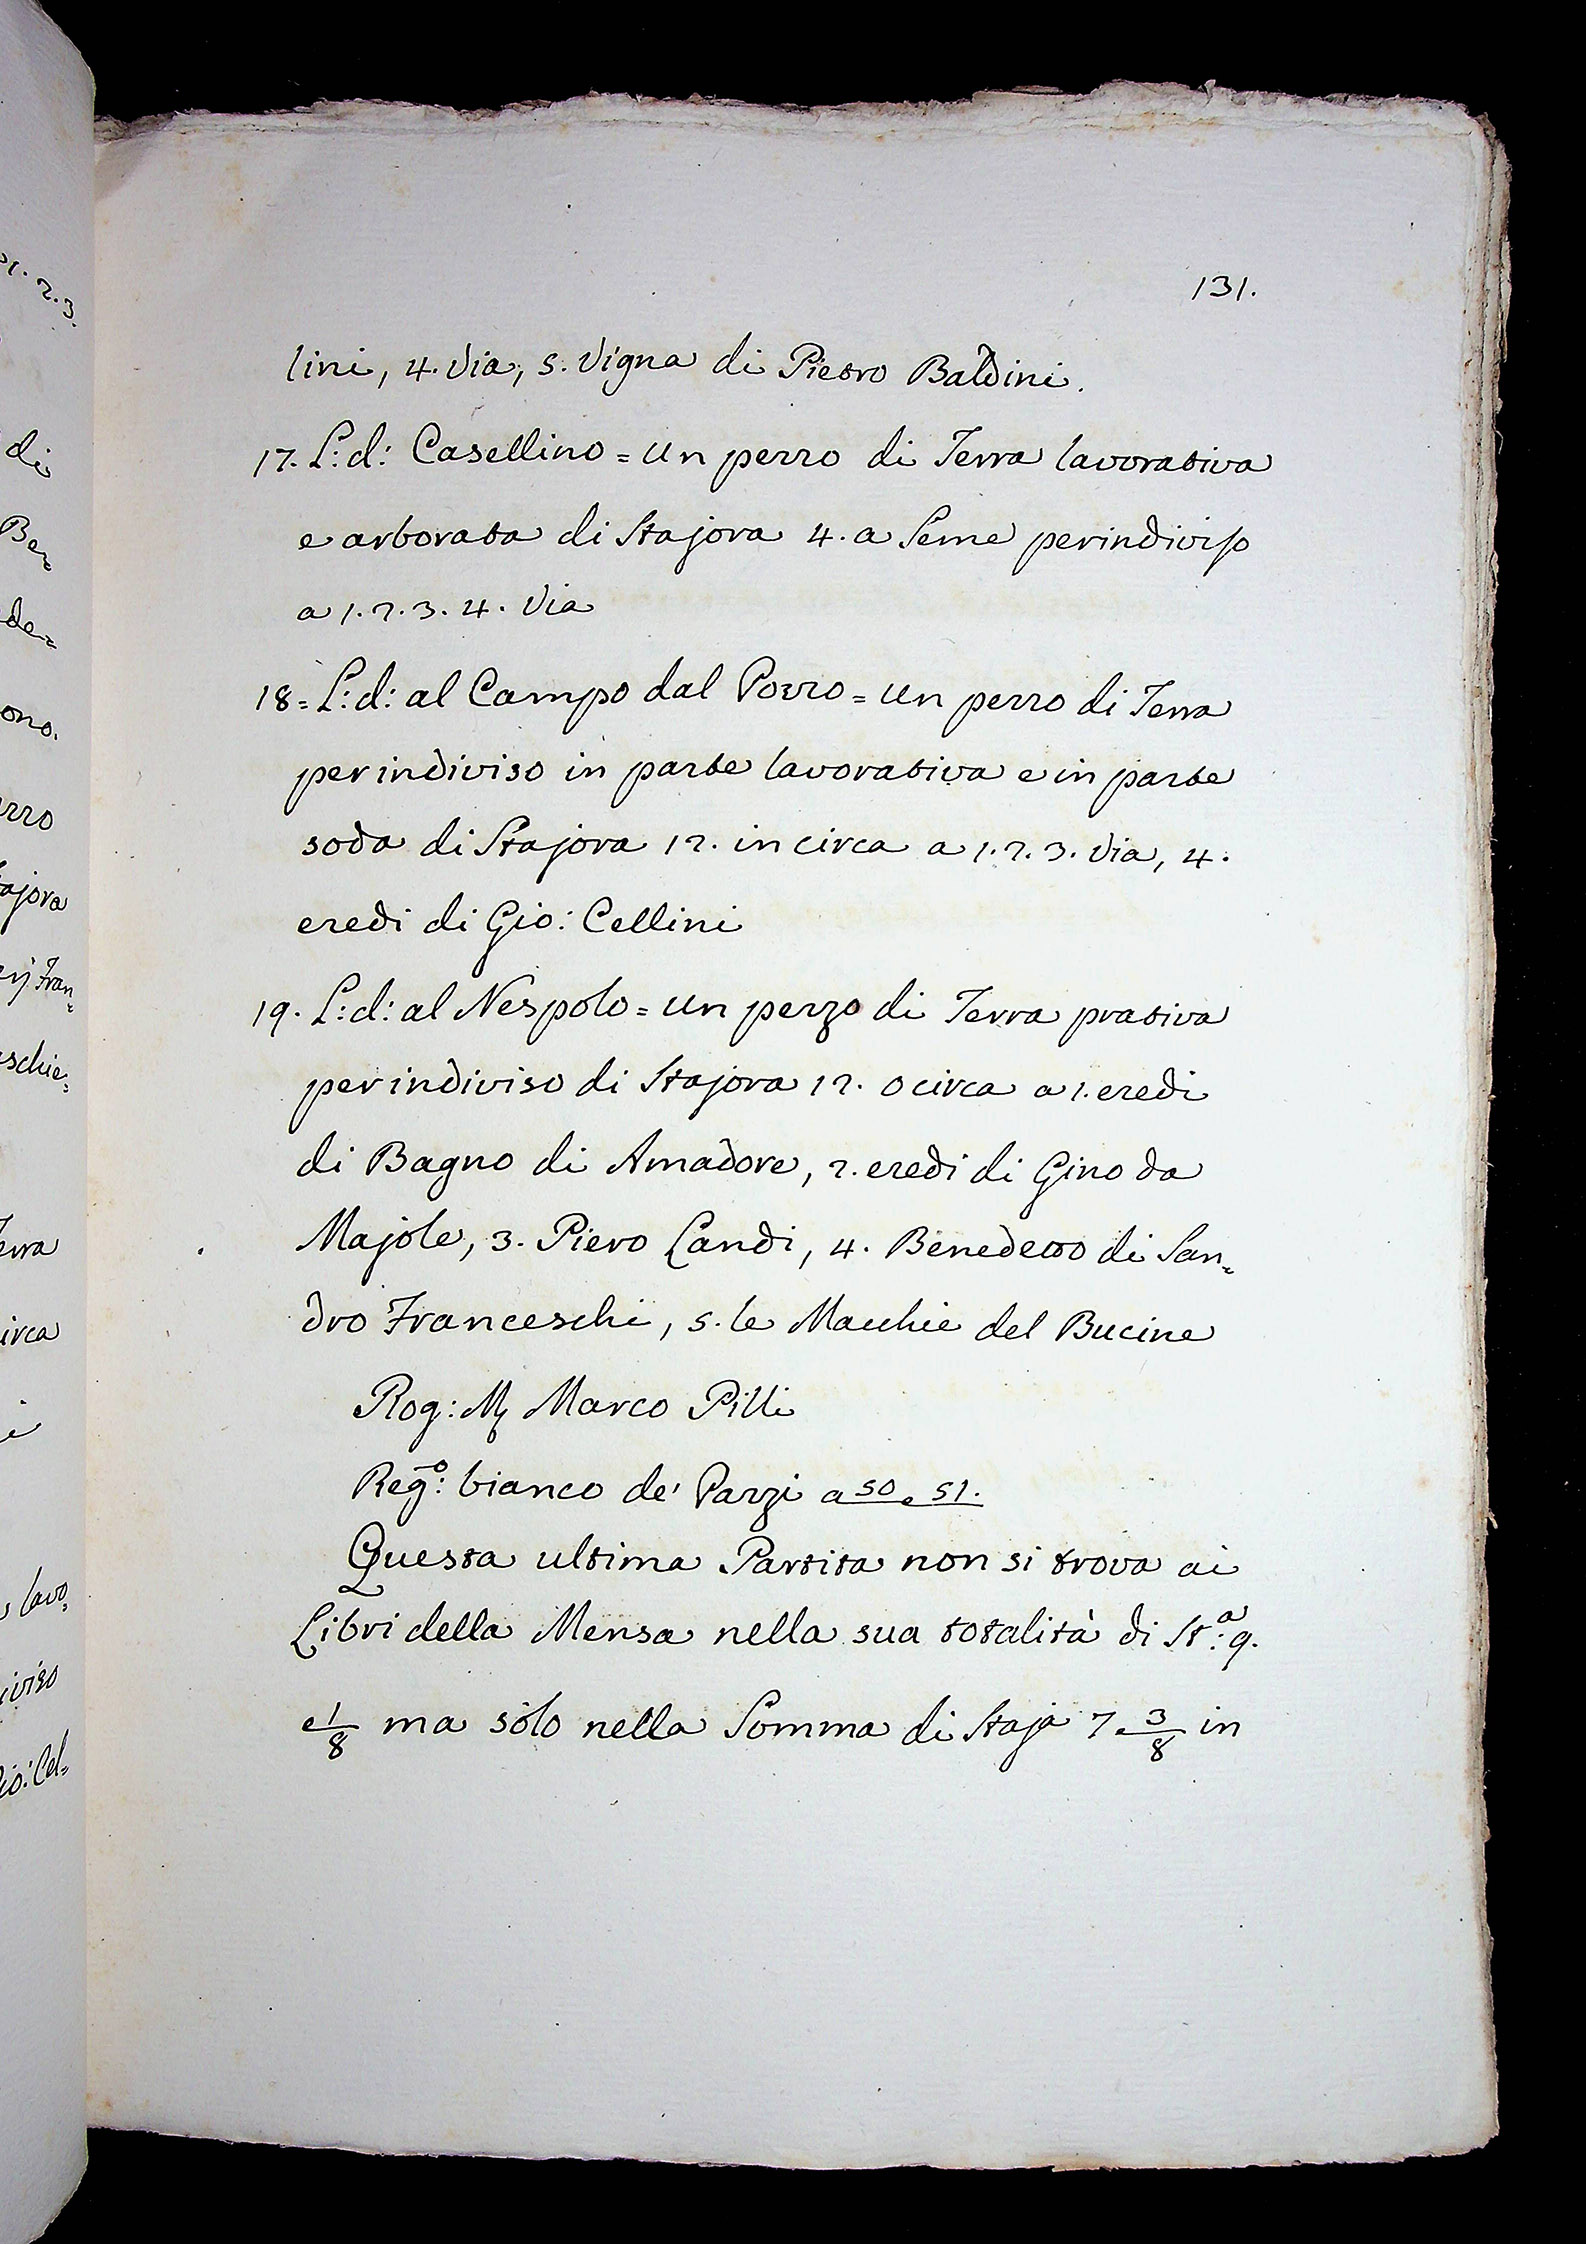 131.
lini, 4. Via, 5. Vigna di Pietro Baldini.
17. L: d: Casellino = Un pezzo di Terra lavorativa
e arborata di Stajora 4. a Seme perindiviso
a 1. 2. 3. 4. Via
18 = L: d: al Campo dal Pozzo = Un pezzo di Terra
perindiviso in parte lavorativa e in parte
soda di Stajora 12. in circa a 1. 2. 3. Via, 4.
eredi di Gio: Cellini
19. L: d: al Nespolo = Un pezzo di Terra prativa
perindiviso di Stajora 12. o circa a 1. eredi
di Bagno di Amadore, 2. eredi di Gino da
Majole, 3. Piero Landi, 4. Benedetto di San=
dro Franceschi, 5. le Macchie del Bucine
Rog: M Marco Pilli
Reg.º: bianco de' Pazzi a 50 e 51.
Questa ultima Partita non si trova ai
Libri della Mensa nella sua totalità di St.ª: 9.
e 1/8 ma solo nella Somma di Staja 7. 3/8 in